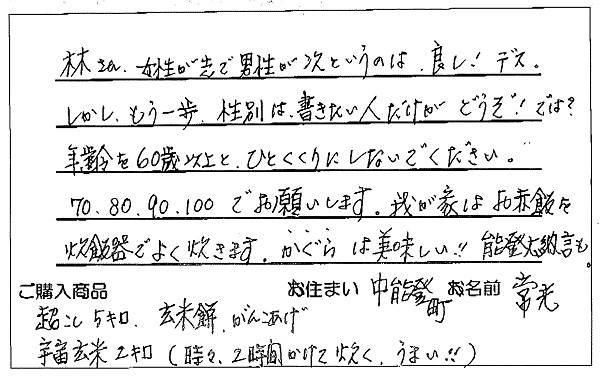 林さん、女性が先で男性が次というのは、良し!デス。
しかし、もう一歩、性別は、書きたい人だけが どうぞ!では?
年齢を60歳以上と、ひとくくりにしないでください。
70、80、90、100 でお願いします。我が家はお赤飯を
炊飯器でよく炊きます。かぐら は美味しい!! 能登大納言も。
ご購入商品 お住まい 中能登町 お名前 常光
超こし5キロ、玄米餅、がんこあげ
宇宙玄米2キロ(時々、2時間かけて炊く、うまい!!)